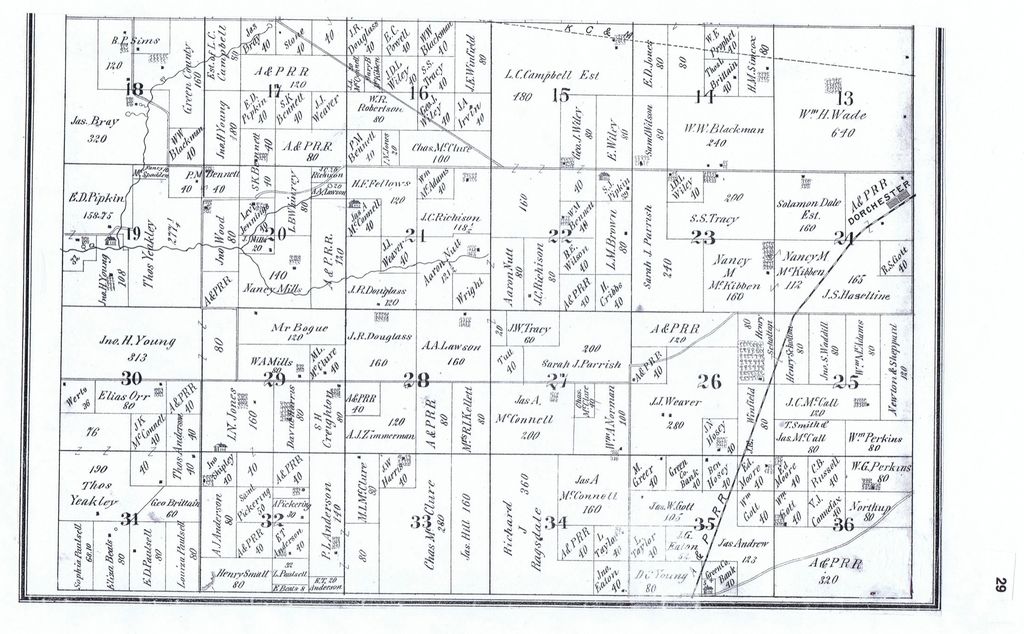 R.P. Sims
120
18
Jas. Bray
320
Green County
160
Est. of L.C.
Campbell
80
WW
Blackman
40
Jno. H. Young
180
Jas
Bray
40
Stone
40
40
A & P R R
120
17
E.D.
Pipkin
40
S.K.
Bennett
40
J.J.
Weaver
40
A. & P.R.R.
80
S.K. Bennett
40
J.R.
Douglass
40
E.C.
Powell
40
WW
Blackman
40
J.D.L.
Wiley
40
S.S.
Tracy
40
J.E. Winfield
80
16
W.R.
Robertson
80
Geo. J.
Wiley
40
J.A
Irwin
40
P.M
Bennett
40
T.N. Jones
20
Chas. McClure
160
K C &
L.C. Campbell Est
480
15
Geo. J. Wiley
80
E. Wiley
80
E.D. Jones
80
80
W.E.
Prophet
40
Thos.
Brittain
40
H.M. Simcox
80
14
Saml Wilson
80
W.W. Blackman
240
13
Wm H. Wade
640
E.D. Pipkin
158.75
19
Jno. H. Young
108
Thos Yeakley
277½
P.M Bennett
40
40
Jno Wood
80
A & P R R
40
Levi
Jennings
20
J. Mills
20
140
Nancy Mills
J.C. 20
Richison
A.A. Lawson
A & P. R.R.
120
H.F. Fellows
120
Wm
McAdams
40
Jas. A
McConnell
40
J.C. Richison
118½
21
J.J.
Weaver
40
Aaron Nutt
121½
J.R. Douglass
120
Wright
160
Aaron Nutt
80
J.C. Richison
80
40
S.J.
Pipkin
25
WM
Bennett
40
22
B.E.
Wilson
40
L.M. Brown
80
A & P R R
40
H.
Cribbs
40
Sarah J. Parrish
240
J.D.L.
Wiley
40
200
S.S. Tracy
23
Nancy
M
McKibben
160
Solamon Dale
Est.
160
24
Nancy M
McKibben
112
A & P R R
DORCHESTER
165
J.S. Hazeltine
R.S. Gott
40
Jno. H. Young
313
30
80
Mr Bogue
120
W.A. Mills
80
M.L.
McClure
40
29
J.R. Douglass
160
28
A.A. Lawson
160
20
J.W. Tracy
60
Tait
40
200
Sarah J. Parrish
27
A & P R R
120
A & P R R
40
26
80
Henry
Scholten
Henry Scholten
80
Jno. S. Waddill
80
Wm McAdams
80
25
Newton & Sheppard
120
Werts
36
Elias Orr
80
76
J.K
McConnell
40
A & P R R
40
Thos Anderson
40
L.N. Jones
160
S H
Creighton
80
A & P R R
40
120
A.J. Zimmerman
A & P R R
80
Mrs R.I. Kellett
80
Jas A.
McConnell
200
Chas.
McClure
40
Wm A. Norman
100
J.J. Weaver
280
J.Y
Hosey
40
J.E. Winfield
80
J.C. McCall
120
T. Smith &
Jas McCall
80
Wm Perkins
80
190
Thos
Yeakley
40
40
31
Geo Brittain
60
Sophia Paulsell
Elias Boots
80
E.D. Paulsell
80
Louisa Paulsell
80
Jno
Shipley
40
A.J. Anderson
80
40
A & P R R
40
Saml
Pickering
40
J. Pickering
30
32
A & P R R
40
E.T
Anderson
40
P.L. Anderson
140
Henry Small
80
L. Paulsell
E Boats 8
E.T. 20
Anderson
M.L. McClure
80
80
J.W
Harris
40
33
Chas McClure
280
Jas. Hill 160
Richard
J
Ragsdale
360
Jas A
McConnell
160
34
A & P R R
40
L
Taylor
40
Jno.
Eaton
40
M.
Greer
40
Green
Co.
Bank
40
Bev
Hosey
40
Jas. W. Gott
105
35
L.
Taylor
40
J.G.
Eaton
D C Young
80
A & P A R R
Jas Andrew
133
Green Co.
Bank
40
Ed.
Moore
40
Ed
Moore
40
C.B.
Russell
40
W.G. Perkins
40
Wm
Gott
40
Wm
Gott
40
V.J.
Comfax
40
Northup
80
36
A & P R R
320
29